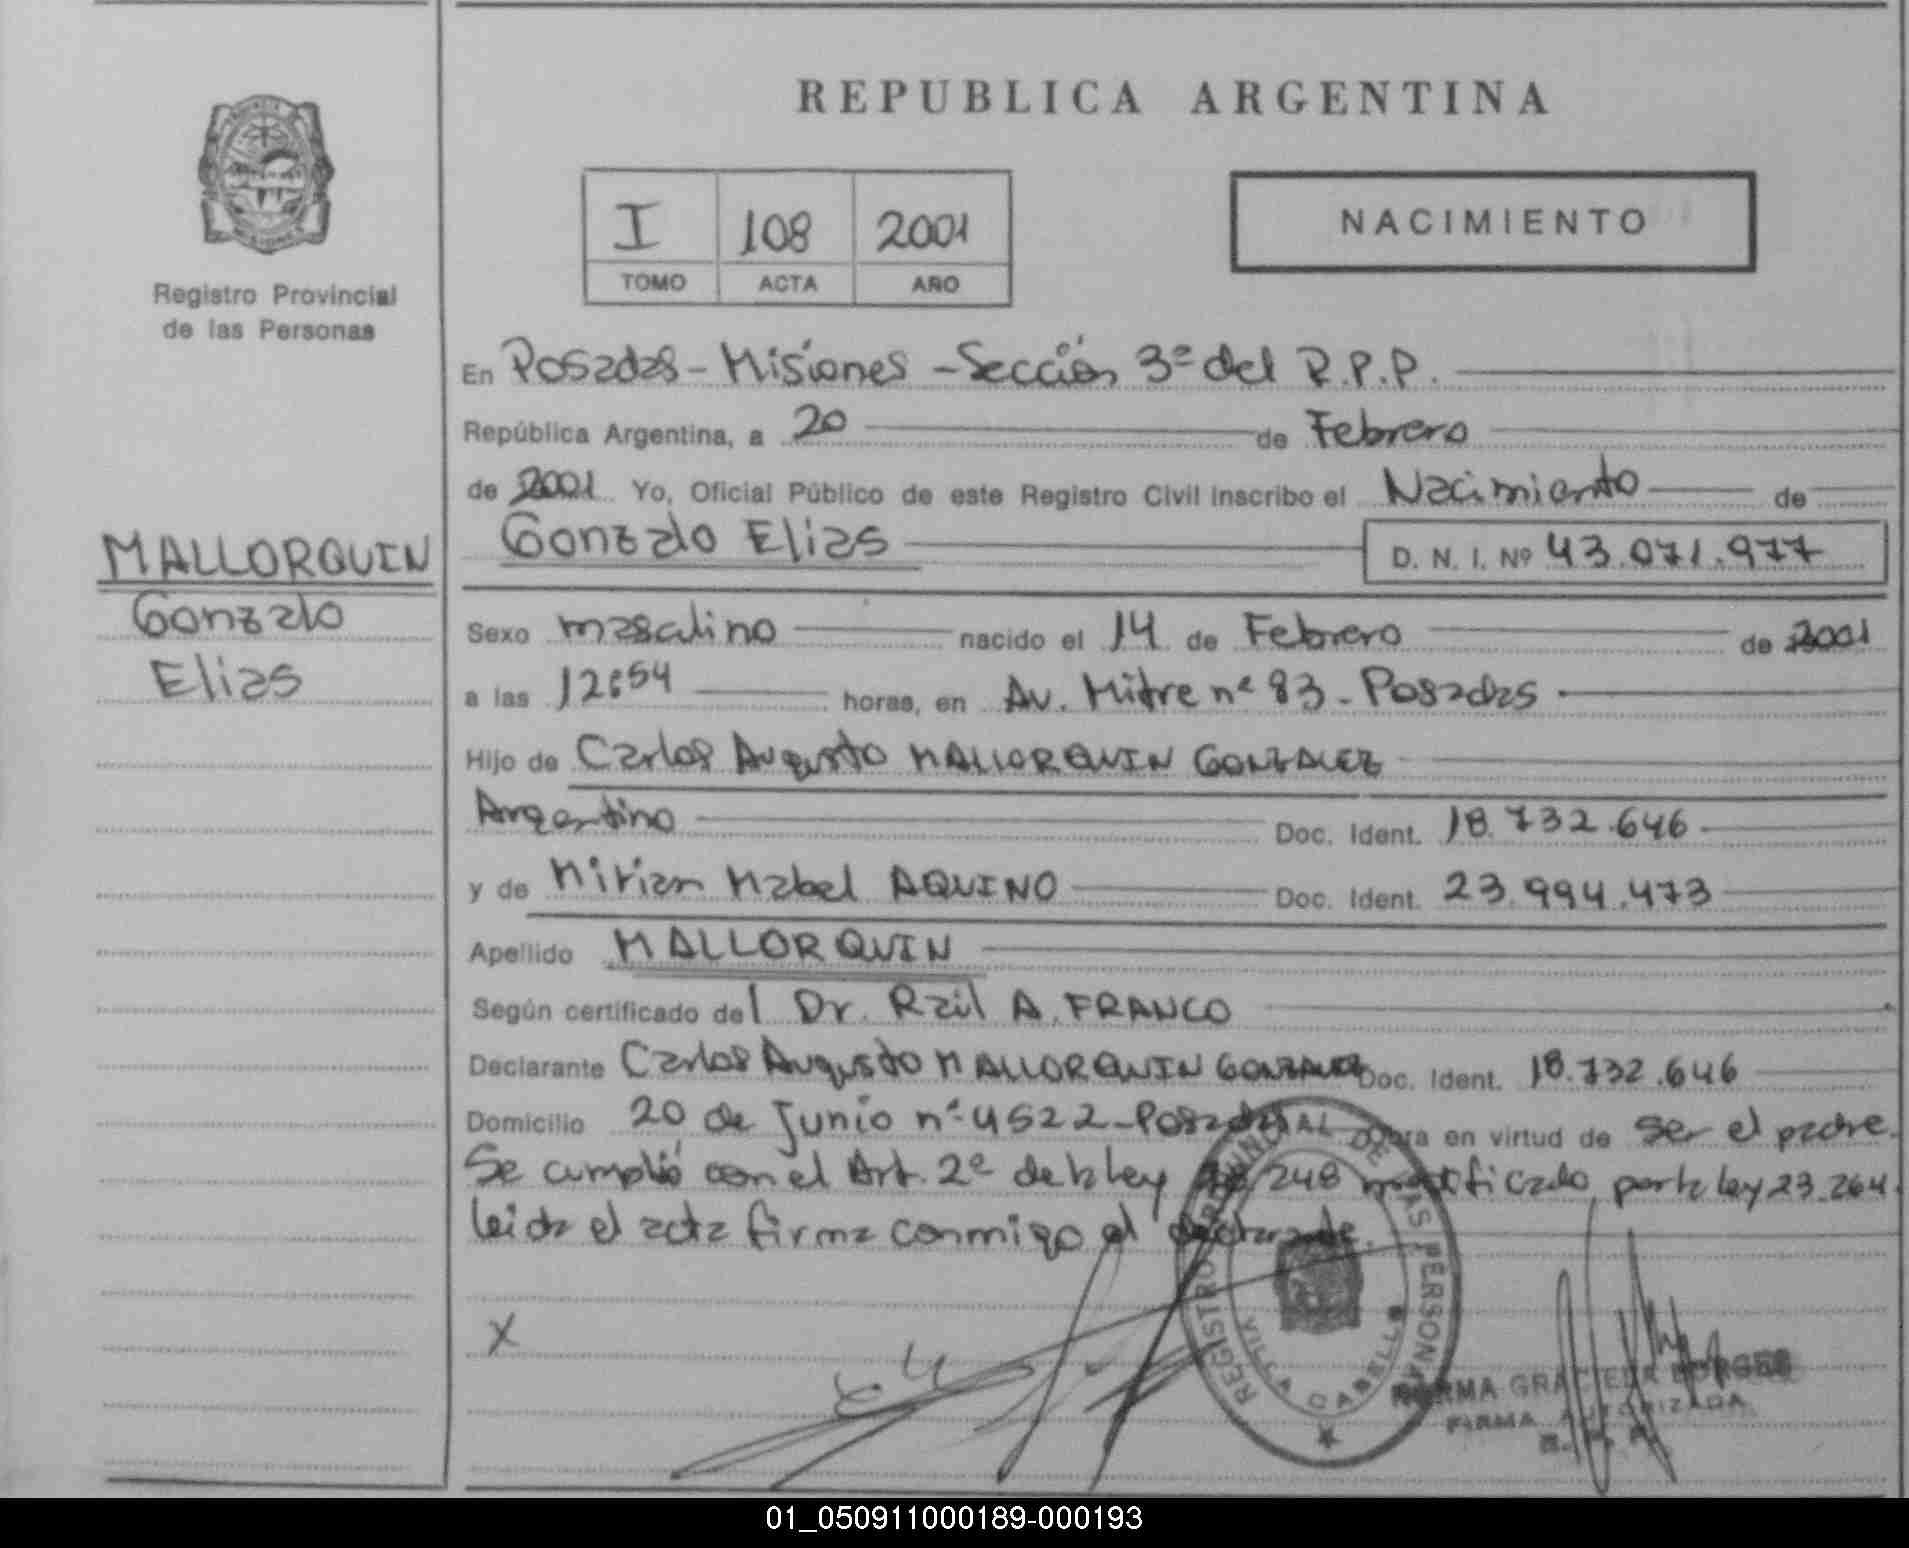 REPUBLICA ARGENTINA
I 108 2001
TOMO ACTA AÑO
NACIMIENTO
Registro Provincial
de las Personas
MALLORQUIN
Gonzalo
Elias
En Posadas - Misiones - Sección 3ª del R.P.P.
República Argentina, a 20 de Febrero
de 2001 Yo, Oficial Público de este Registro Civil inscribo el Nacimiento de
Gonzalo Elias D. N. I. Nº 43.071.977
Sexo masculino nacido el 14 de Febrero de 2001
a las 12:54 horas, en Av. Mitre nº 83 - Posadas
Hijo de Carlos Augusto MALLORQUIN GONZALEZ
Argentino Doc. Ident. 18.732.646
y de Mirian Mabel AQUINO Doc. Ident. 23.994.473
Apellido MALLORQUIN
Según certificado del Dr. Raúl A. FRANCO
Declarante Carlos Augusto MALLORQUIN GONZALEZ Doc. Ident. 18.732.646
Domicilio 20 de Junio nº 4522 - Posadas Obra en virtud de ser el padre.
Se cumplió con el Art. 2º de la ley 18.248 modificado por la ley 23.264.
leida el acta firma conmigo el declarante.
X
REGISTRO PROVINCIAL DE LAS PERSONAS
VILLA CABELLO
NORMA GRACIELA BORGES
FIRMA AUTORIZADA
01_050911000189-000193